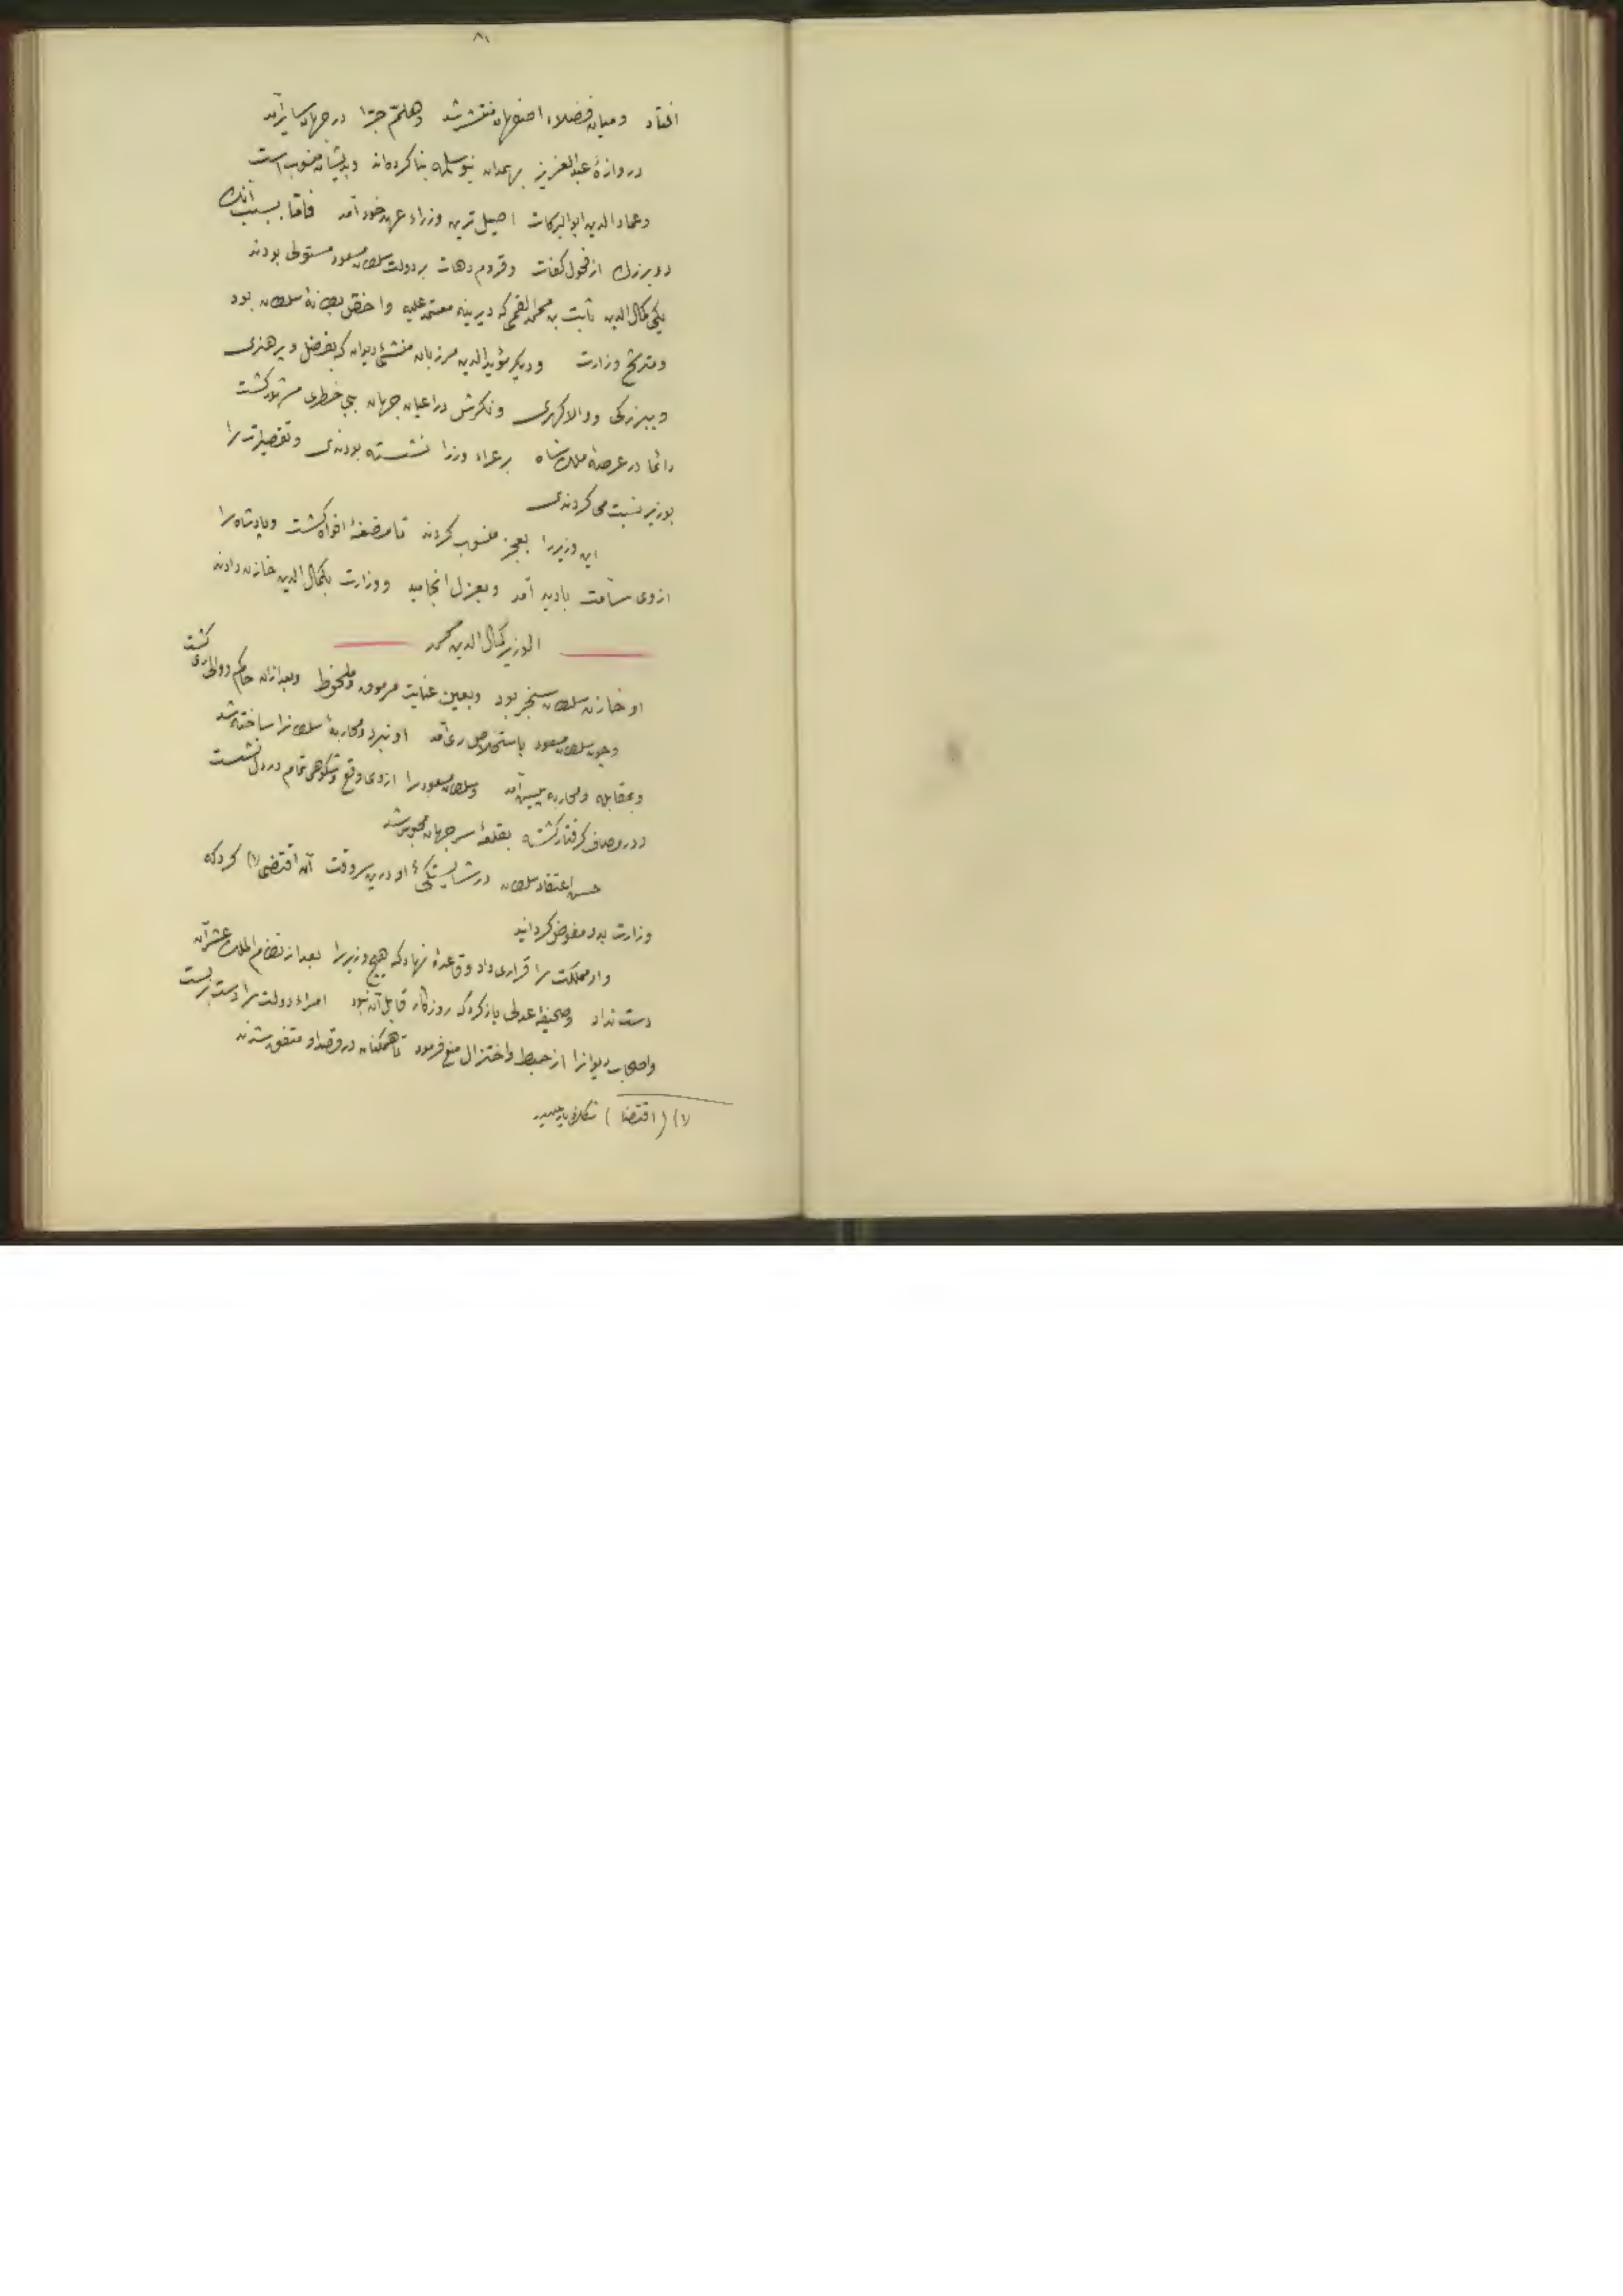 ۸۱
افتاد و میان فضلاء اصفهان منتشر شد وهلمّ جرّا در جهان سایر آمد
دروازهٔ عبدالعزیز بهمدان بنو سلمه بنا کرده‌اند و بدیشان منسوب است
و عماد الدین ابوالبرکات اصیل ترین وزراء عهد خود آمد فامّا بسبب آنک
دو بزرگ از فحول کفات و قروم دهات بر دولت سلطان مسعود مستولی بودند
یکی کمال الدین ثابت بن محمد القمی که دیرینه معتمد علیه و اخصّ بطانهٔ سلطان بود
و مترشح وزارت و دیگر مؤید الدین مرزبان منشئ دیوان که بفضل و پرهنری
و بزرگی و والا گهری و ذکرش در اعیان جهان بی خطری مشهور گشت
دائما در عرصهٔ ملک شاه بر عراء وزرا نشسته بودندی و تقصیرات را
بوزیر نسبت می کردندی
این وزیر را بعجز منسوب کردند تا مضغهٔ افواه گشت و پادشاه را
از وی سآمت بادید آمد و بعزل انجامید و وزارت بکمال الدین خازن دادند
الوزیر کمال الدین محمد
او خازن سلطان سنجر بود و بعین عنایت مرموق و ملحوظ و بعد از آن حاکم و والی ری گشت
و چون سلطان مسعود باستخلاص ری آمد او نبرد و محاربهٔ سلطان را ساخته شد
و بمقابله و محاربه پیش آمد و سلطان مسعود را از وی وقع و شکوهی تمام در دل نشست
و در مصاف گرفتار گشته بقلعهٔ سرجهان محبوس شد
حسن اعتقاد سلطان در شایستگیٔ او درین سر وقت آن اقتضی (۱) کرد که
وزارت بدو مفوض گردانید
و او مملکت را قراری داد و قاعدهٔ نهاد که هیچ وزیر را بعد از نظام الملک عشر آن
دست نداد و صحیفهٔ عدلی باز کرد که روزگار قابل آن نبود امراء دولت را دست بر بست
و اصحاب دیوانرا از خبط و اختزال منع فرمود تا همگنان در قصد او متفق شدند
(۱) (اقتضا)